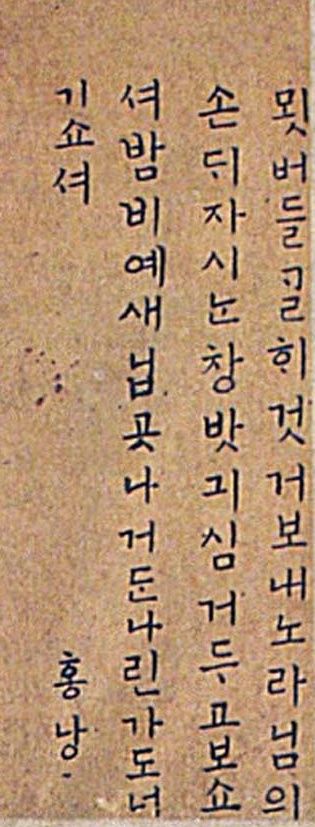 묏버들ᄀᆞᆯᄒᆡ것거보내노라님의
손ᄃᆡ자시ᄂᆞᆫ창밧긔심거두고보쇼
셔밤비예새닙곳나거든나린가도너
기쇼셔
홍낭.